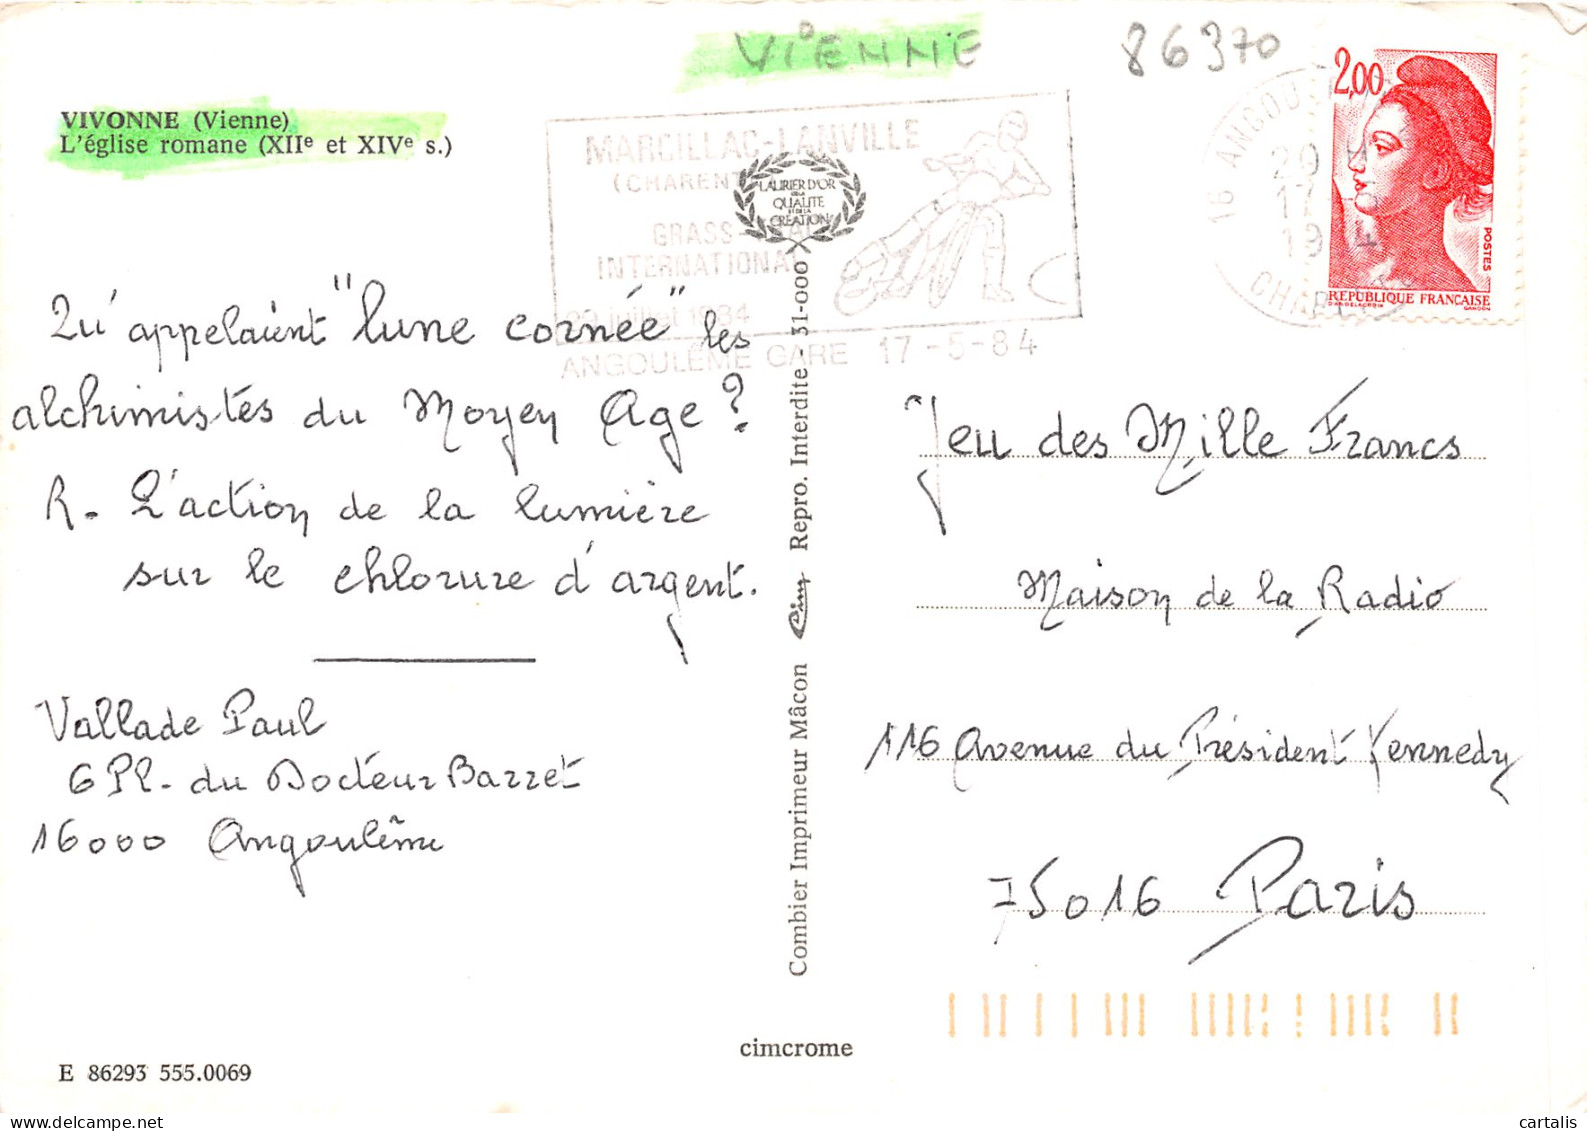 VIENNE
86370
VIVONNE (Vienne)
L'église romane (XIIe et XIVe s.)
MARCILLAC-LANVILLE
(CHARENTE)
GRASS-
INTERNATIONAL
29 juillet 1984
ANGOULÊME GARE 17-5-84
LAURIER D'OR
DE LA
QUALITE
ET DE LA
CREATION
16 ANGOU
20 H
17-5
1984
CHARENTE
2,00
POSTES
REPUBLIQUE FRANÇAISE
D'APRES DELACROIX
GANDON
Qu'appelaient "lune cornée" les
alchimistes du Moyen Age?
R. L'action de la lumière
sur le chlorure d'argent.
Vallade Paul
6 Pl. du Docteur Barret
16000 Angoulême
Combier Imprimeur Mâcon Cim Repro. Interdite - 31-000
Jeu des Mille Francs
Maison de la Radio
116 Avenue du Président Kennedy
75016 Paris
cimcrome
E 86293 555.0069
cartalis
www.delcampe.net